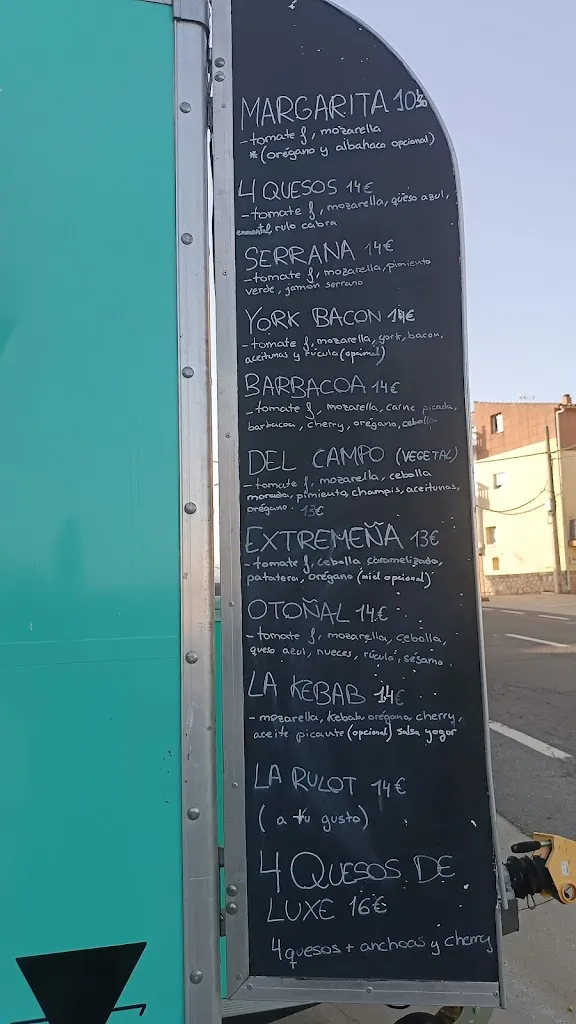 MARGARITA 10€
- tomate f, mozarella
* (orégano y albahaca opcional)
4 QUESOS 14€
- tomate f, mozarella, queso azul,
emmental, rulo cabra
SERRANA 14€
- tomate f, mozarella, pimiento
verde, jamón serrano
YORK BACON 14€
- tomate f, mozarella, york, bacon,
aceitunas y rúcula (opcional)
BARBACOA 14€
- tomate f, mozarella, carne picada,
barbacoa, cherry, orégano, cebolla
DEL CAMPO (VEGETAL)
- tomate f, mozarella, cebolla
morada, pimiento, champis, aceitunas,
orégano. 13€
EXTREMEÑA 13€
- tomate f, cebolla caramelizada,
patatera, orégano (miel opcional)
OTOÑAL 14€
- tomate f, mozarella, cebolla,
queso azul, nueces, rúcula, sésamo.
LA KEBAB 14€
- mozarella, kebab, orégano, cherry,
aceite picante (opcional) salsa yogur
LA RULOT 14€
(a tu gusto)
4 QUESOS DE
LUXE 16€
4 quesos + anchoas y cherry